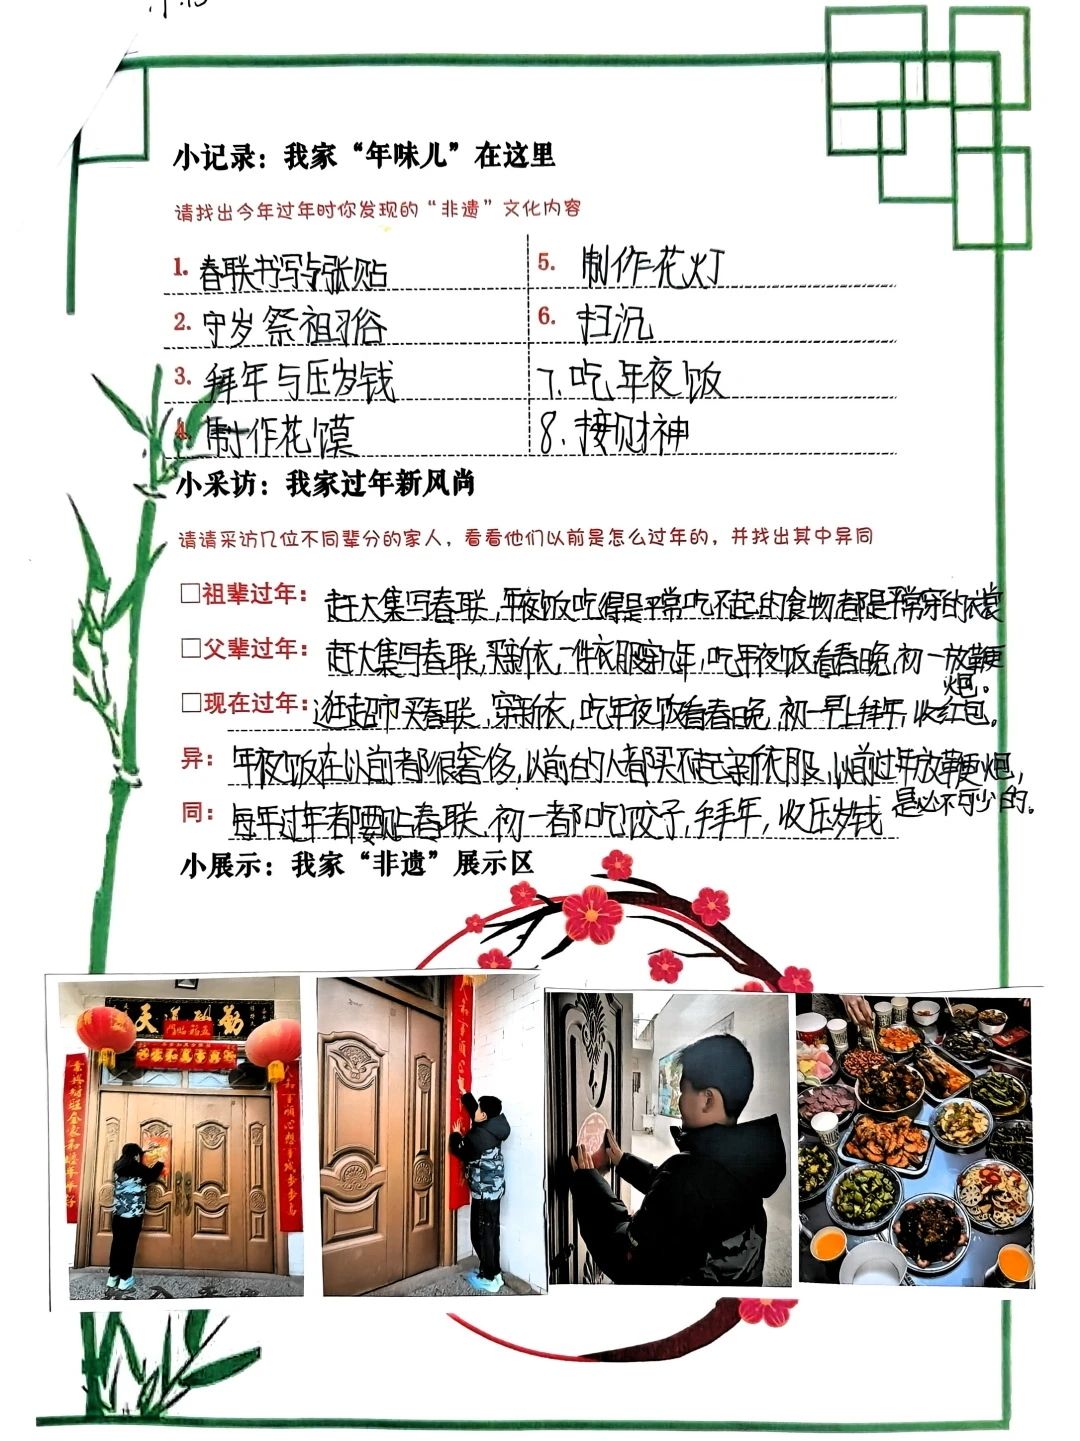 小记录：我家“年味儿”在这里
请找出今年过年时你发现的“非遗”文化内容
1. 春联书写与张贴
2. 守岁祭祖习俗
3. 拜年与压岁钱
4. 制作花馍
5. 制作花灯
6. 扫沉
7. 吃年夜饭
8. 接财神
小采访：我家过年新风尚
请请采访几位不同辈分的家人，看看他们以前是怎么过年的，并找出其中异同
□祖辈过年：赶大集写春联，年夜饭吃得是平常吃不起的食物，都是平常穿的衣裳
□父辈过年：赶大集写春联，买新衣，一件衣服穿几年，吃年夜饭看春晚，初一放鞭
炮。
□现在过年：逛超市买春联，穿新衣，吃年夜饭看春晚，初一早上拜年，收红包。
异：年夜饭在以前都很奢侈，以前的人都买不起新衣服，以前过年放鞭炮，
是必不可少的。
同：每年过年都要贴春联，初一都吃饺子，拜年，收压岁钱
小展示：我家“非遗”展示区
天道酬勤
五福临门
家和万事兴